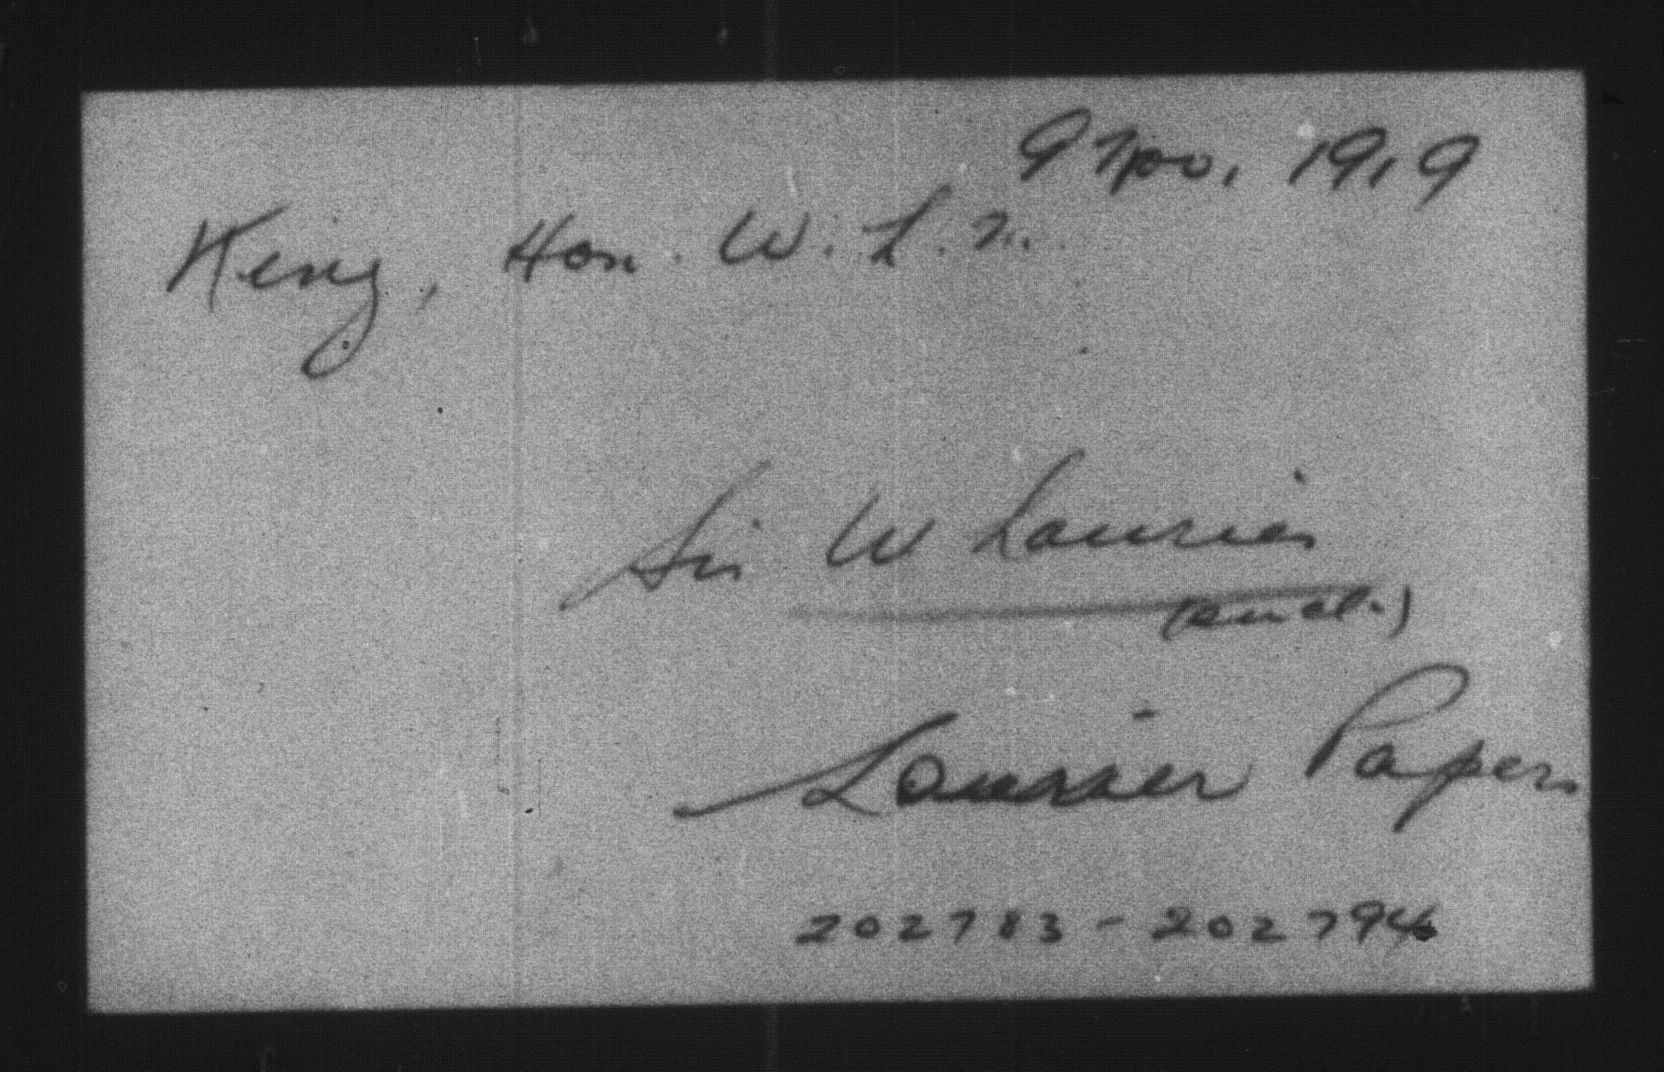 9 Nov, 1919
King, Hon. W. L. M.
Sir W Laurier
(encl.)
Laurier Papers
202783 - 202794